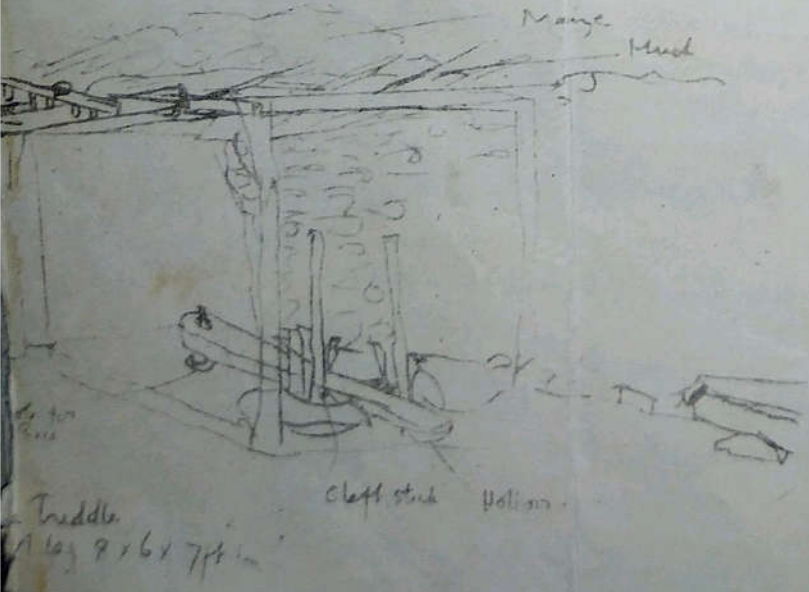 Maize
Mud
Cleft stick Hollow.
Treddle
A log 8 x 6 x 7ft